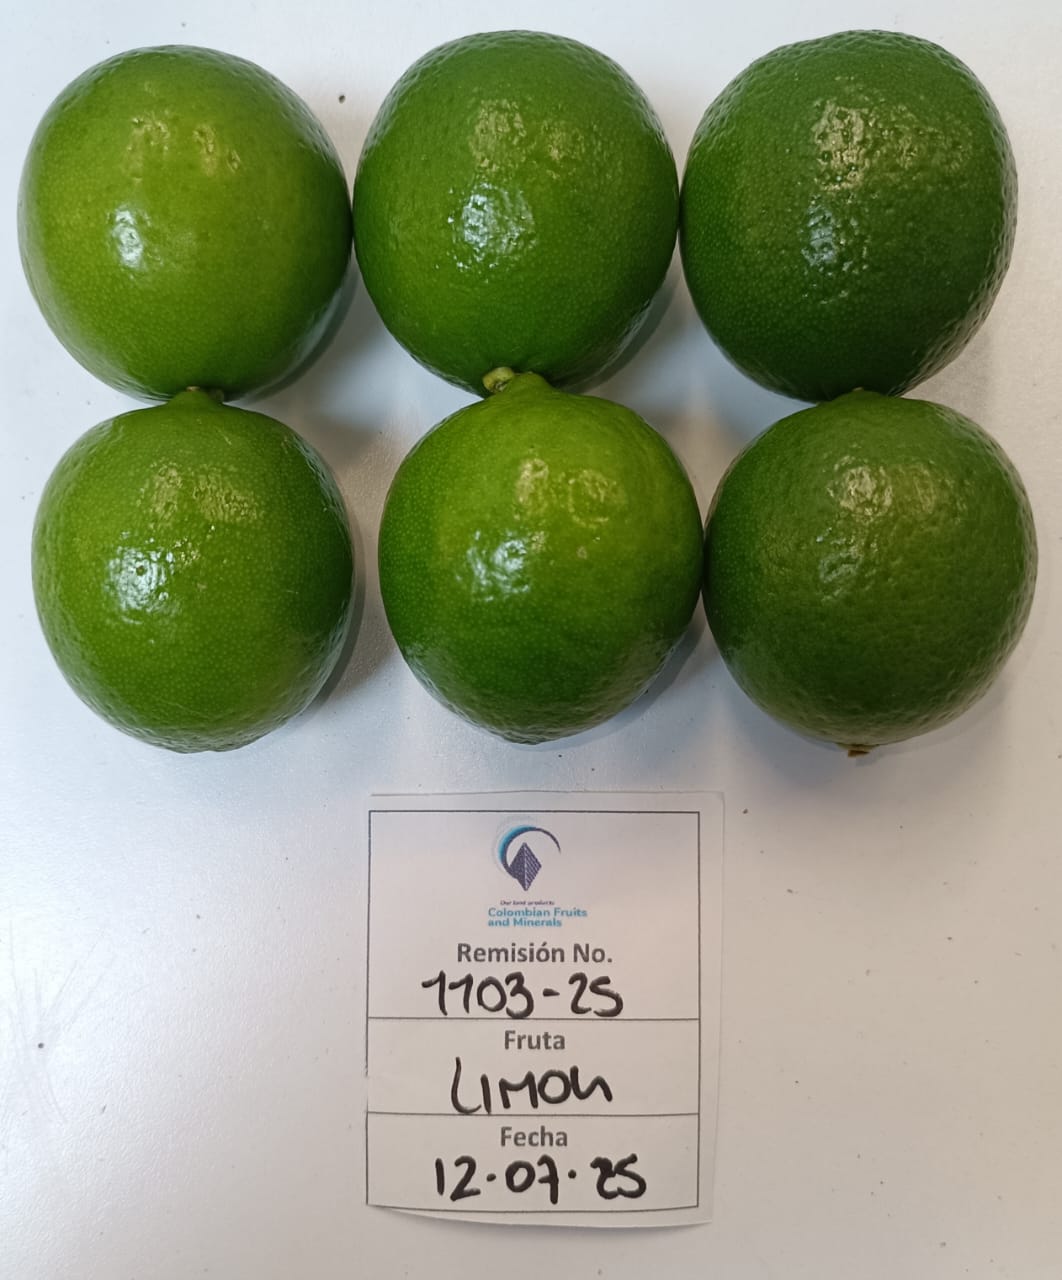 Our land products
Colombian Fruits
and Minerals
Remisión No.
1103-25
Fruta
LIMON
Fecha
12.07.25